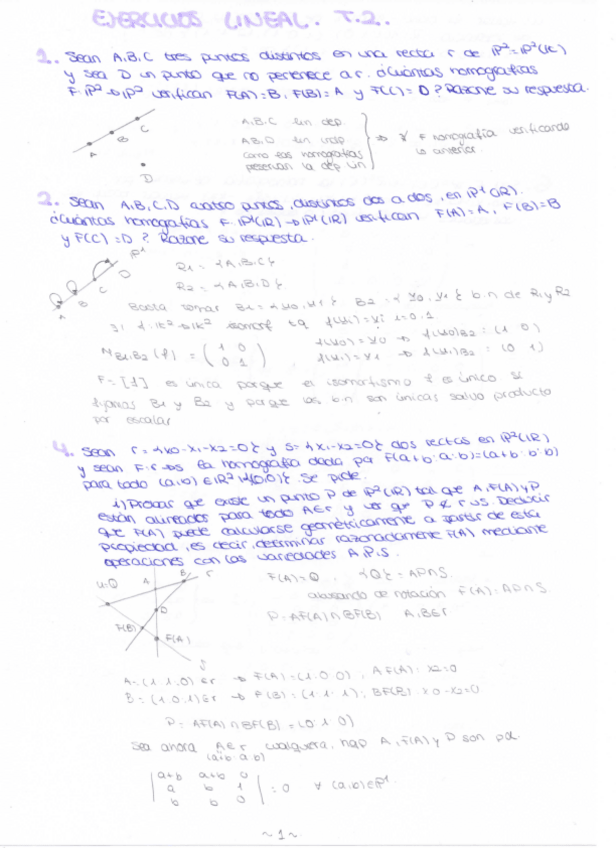 EJERCICIOS LINEAL. T.2.
1. Sean A,B,C tres puntos distintos en una recta r de P²=P²(K)
y sea D un punto que no pertenece a r. ¿Cuántas homografías
F:P²→P² verifican F(A)=B, F(B)=A y F(C)=D? Razone su respuesta.
A,B,C lin dep.
A,B,D lin indp.
como las homografías
preservan la dep lin
⇒ ∄ F homografía verificando
lo anterior
A B C
D
2. Sean A,B,C,D cuatro puntos, distintos dos a dos, en P¹(R).
¿Cuántas homografías F:P¹(R)→P¹(R) verifican F(A)=A, F(B)=B
y F(C)=D? Razone su respuesta.
A B C D P¹
R1 = {A,B,C}
R2 = {A,B,D}
Basta tomar B1={u0,u1} B2={v0,v1} b.n de R1 y R2
Si f:K²→K² isomorf tq f(ui)=vi i=0,1
M B1,B2 (f) = (1 0
0 1)
f(u0)=v0 → f(u0)B2=(1 0)
f(u1)=v1 → f(u1)B2=(0 1)
F=[f] es única porque el isomorfismo f es único si
fijamos B1 y B2 y porque las b.n son únicas salvo producto
por escalar
4. Sean r={x0-x1-x2=0} y s={x1-x2=0} dos rectas en P²(R)
y sean F:r→s la homografía dada por F(a+b:a:b)=(a+b:b:b)
para todo (a,b)∈R²\{(0,0)}. Se pide.
1) Probar que existe un punto P de P²(R) tal que A, F(A) y P
están alineados para todo A∈r y ver que P∉r∪s. Deducir
que F(A) puede calcularse geométricamente a partir de esta
propiedad, es decir, determinar razonadamente F(A) mediante
operaciones con las variedades A,P,S.
A B r
F(B) F(A)
S
F(A)=Q {Q}=AP∩S.
abusando de notación F(A)=AP∩S
P=AF(A)∩BF(B) A,B∈r
A=(1:1:0)∈r → F(A)=(1:0:0), AF(A): x2=0
B=(1:0:1)∈r → F(B)=(1:1:1); BF(B): x0-x2=0
P=AF(A)∩BF(B)=(0:1:0)
Sea ahora A∈r cualquiera, A, F(A) y P son
(a+b:a:b)
a+b a+b 0
a b 1
b b 0
=0 ∀(a,b)∈P¹.
~1~